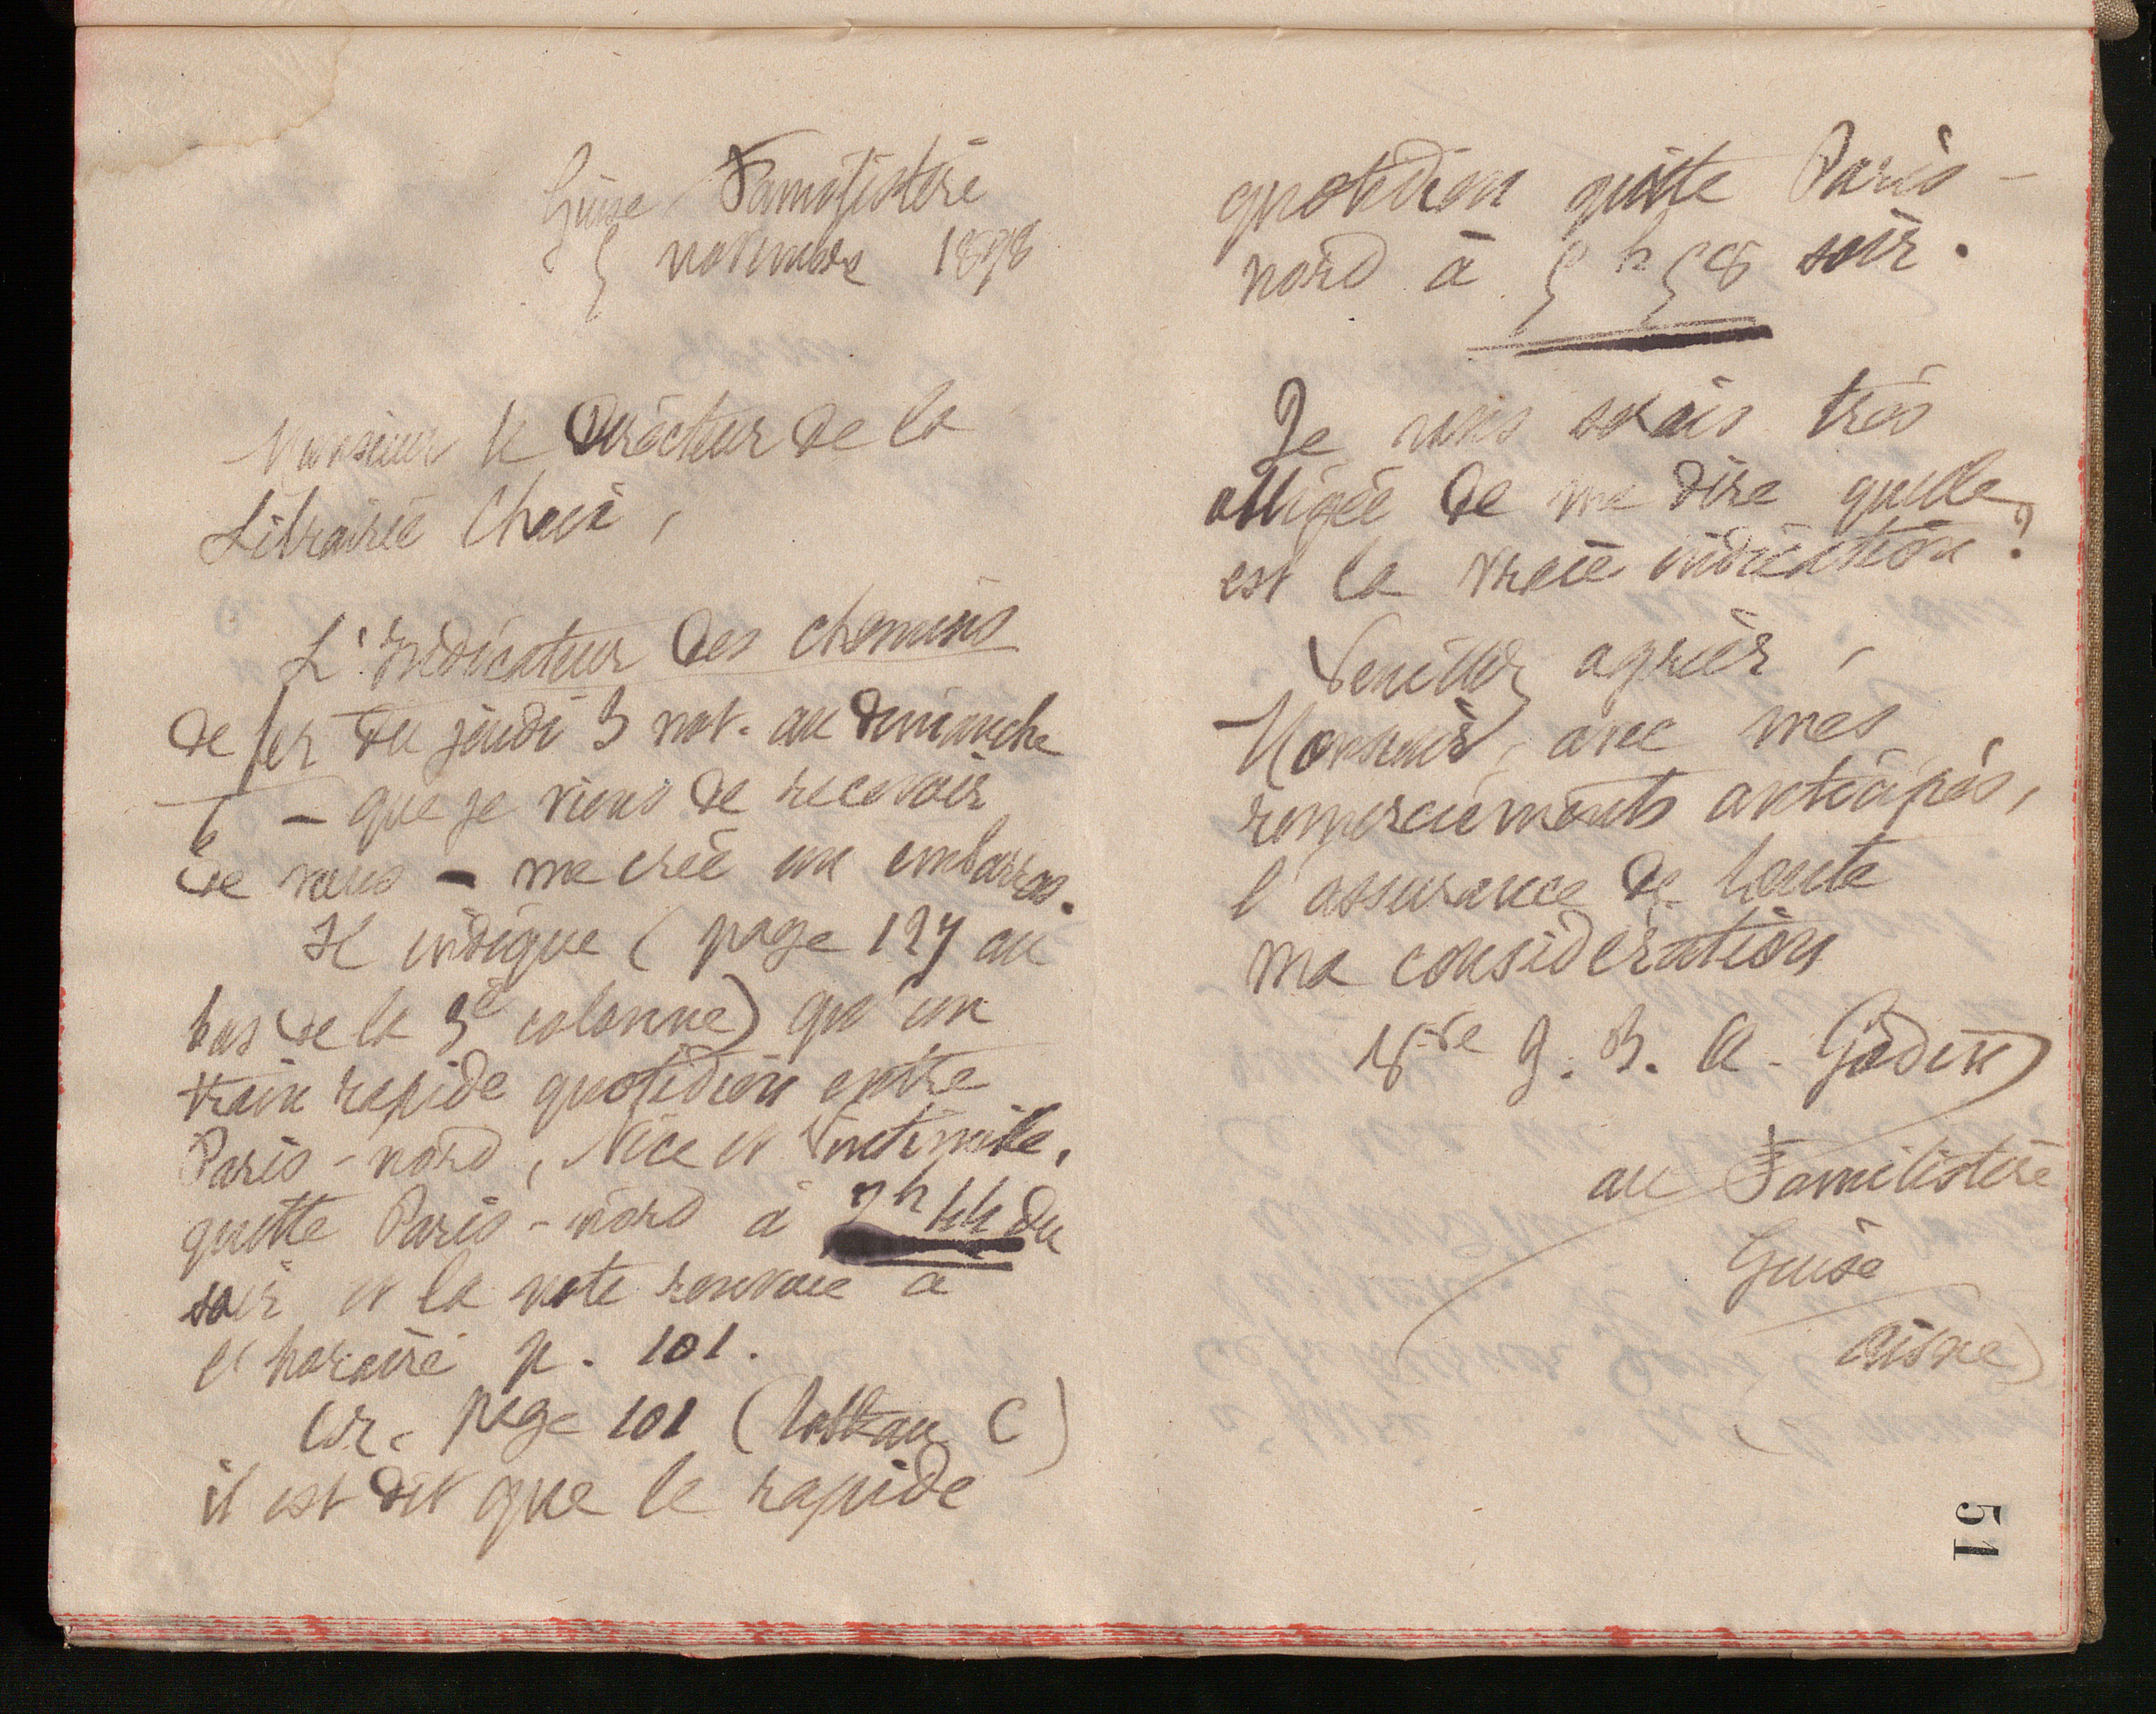 Guise Familistère
5 novembre 1898
Monsieur le Directeur de la
Librairie Chaix,
L'Indicateur des chemins
de fer du jeudi 3 nov. au dimanche
6 – que je viens de recevoir
de vous – me crée un embarras.
Il indique (page 127 au
bas de la 3e colonne) qu'un
train rapide quotidien entre
Paris-nord, Nice et Vintimille,
quitte Paris-nord à 7h 44 du
soir et la note renvoie à
l'horaire p. 101.
Or, page 101 (tableau C)
il est dit que le rapide
quotidien quitte Paris-
nord à 5h58 soir.
Je vous serais très
obligée de me dire quelle
est la vraie indication?
Veuillez agréer,
Monsieur, avec mes
remerciements anticipés,
l'assurance de toute
ma considération
Vve J. B. A. Godin
au Familistère
Guise
(Aisne)
51